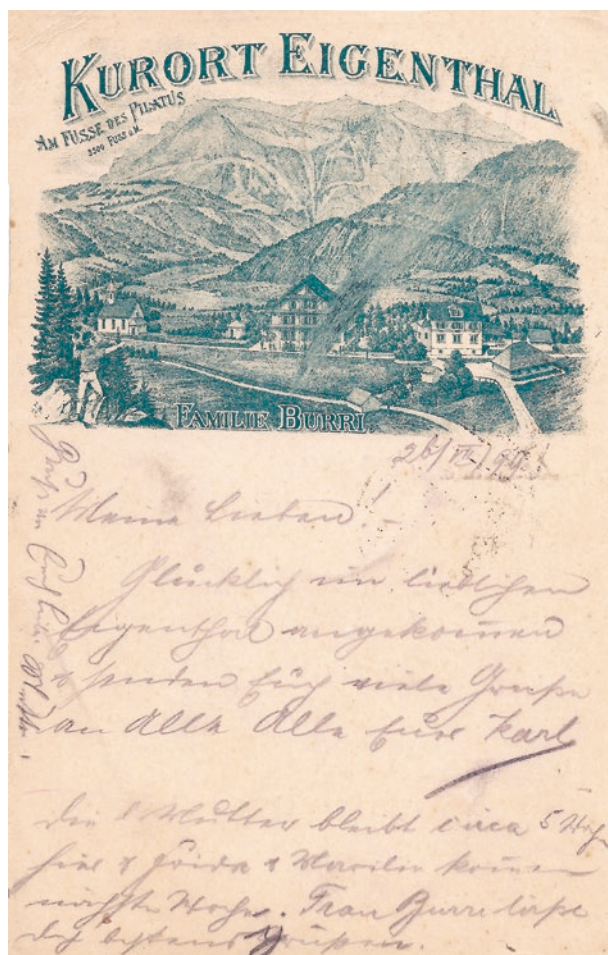 KURORT EIGENTHAL
AM FUSSE DES PILATUS
3500 FUSS ü.M.
FAMILIE BURRI.
26/VII/99
Meine Lieben! -
Glücklich im lieblichen
Eigenthal angekommen
& senden Euch viele Grüsse
an Alle Alle Eure Karl
Die l. Mutter bleibt circa 5
hier &
nächste Woche. Frau Burri lässt
Dich bestens grüßen.
Gruss an